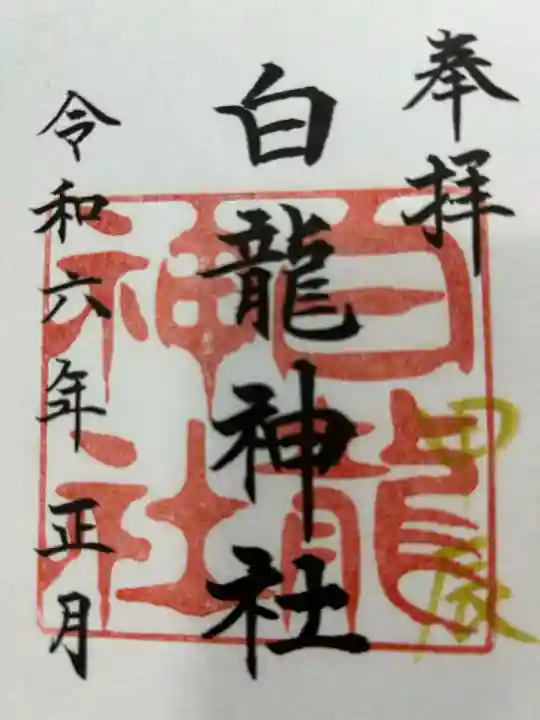 奉拝
甲辰
白龍神社
白龍
神社
令和六年正月